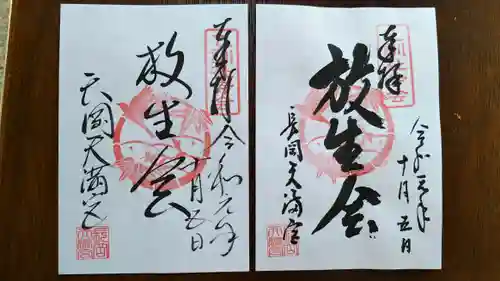 奉拝
令和元年
十月五日
放生会
長岡天満宮
奉拝
令和元年
十月五日
放生会
長岡天満宮